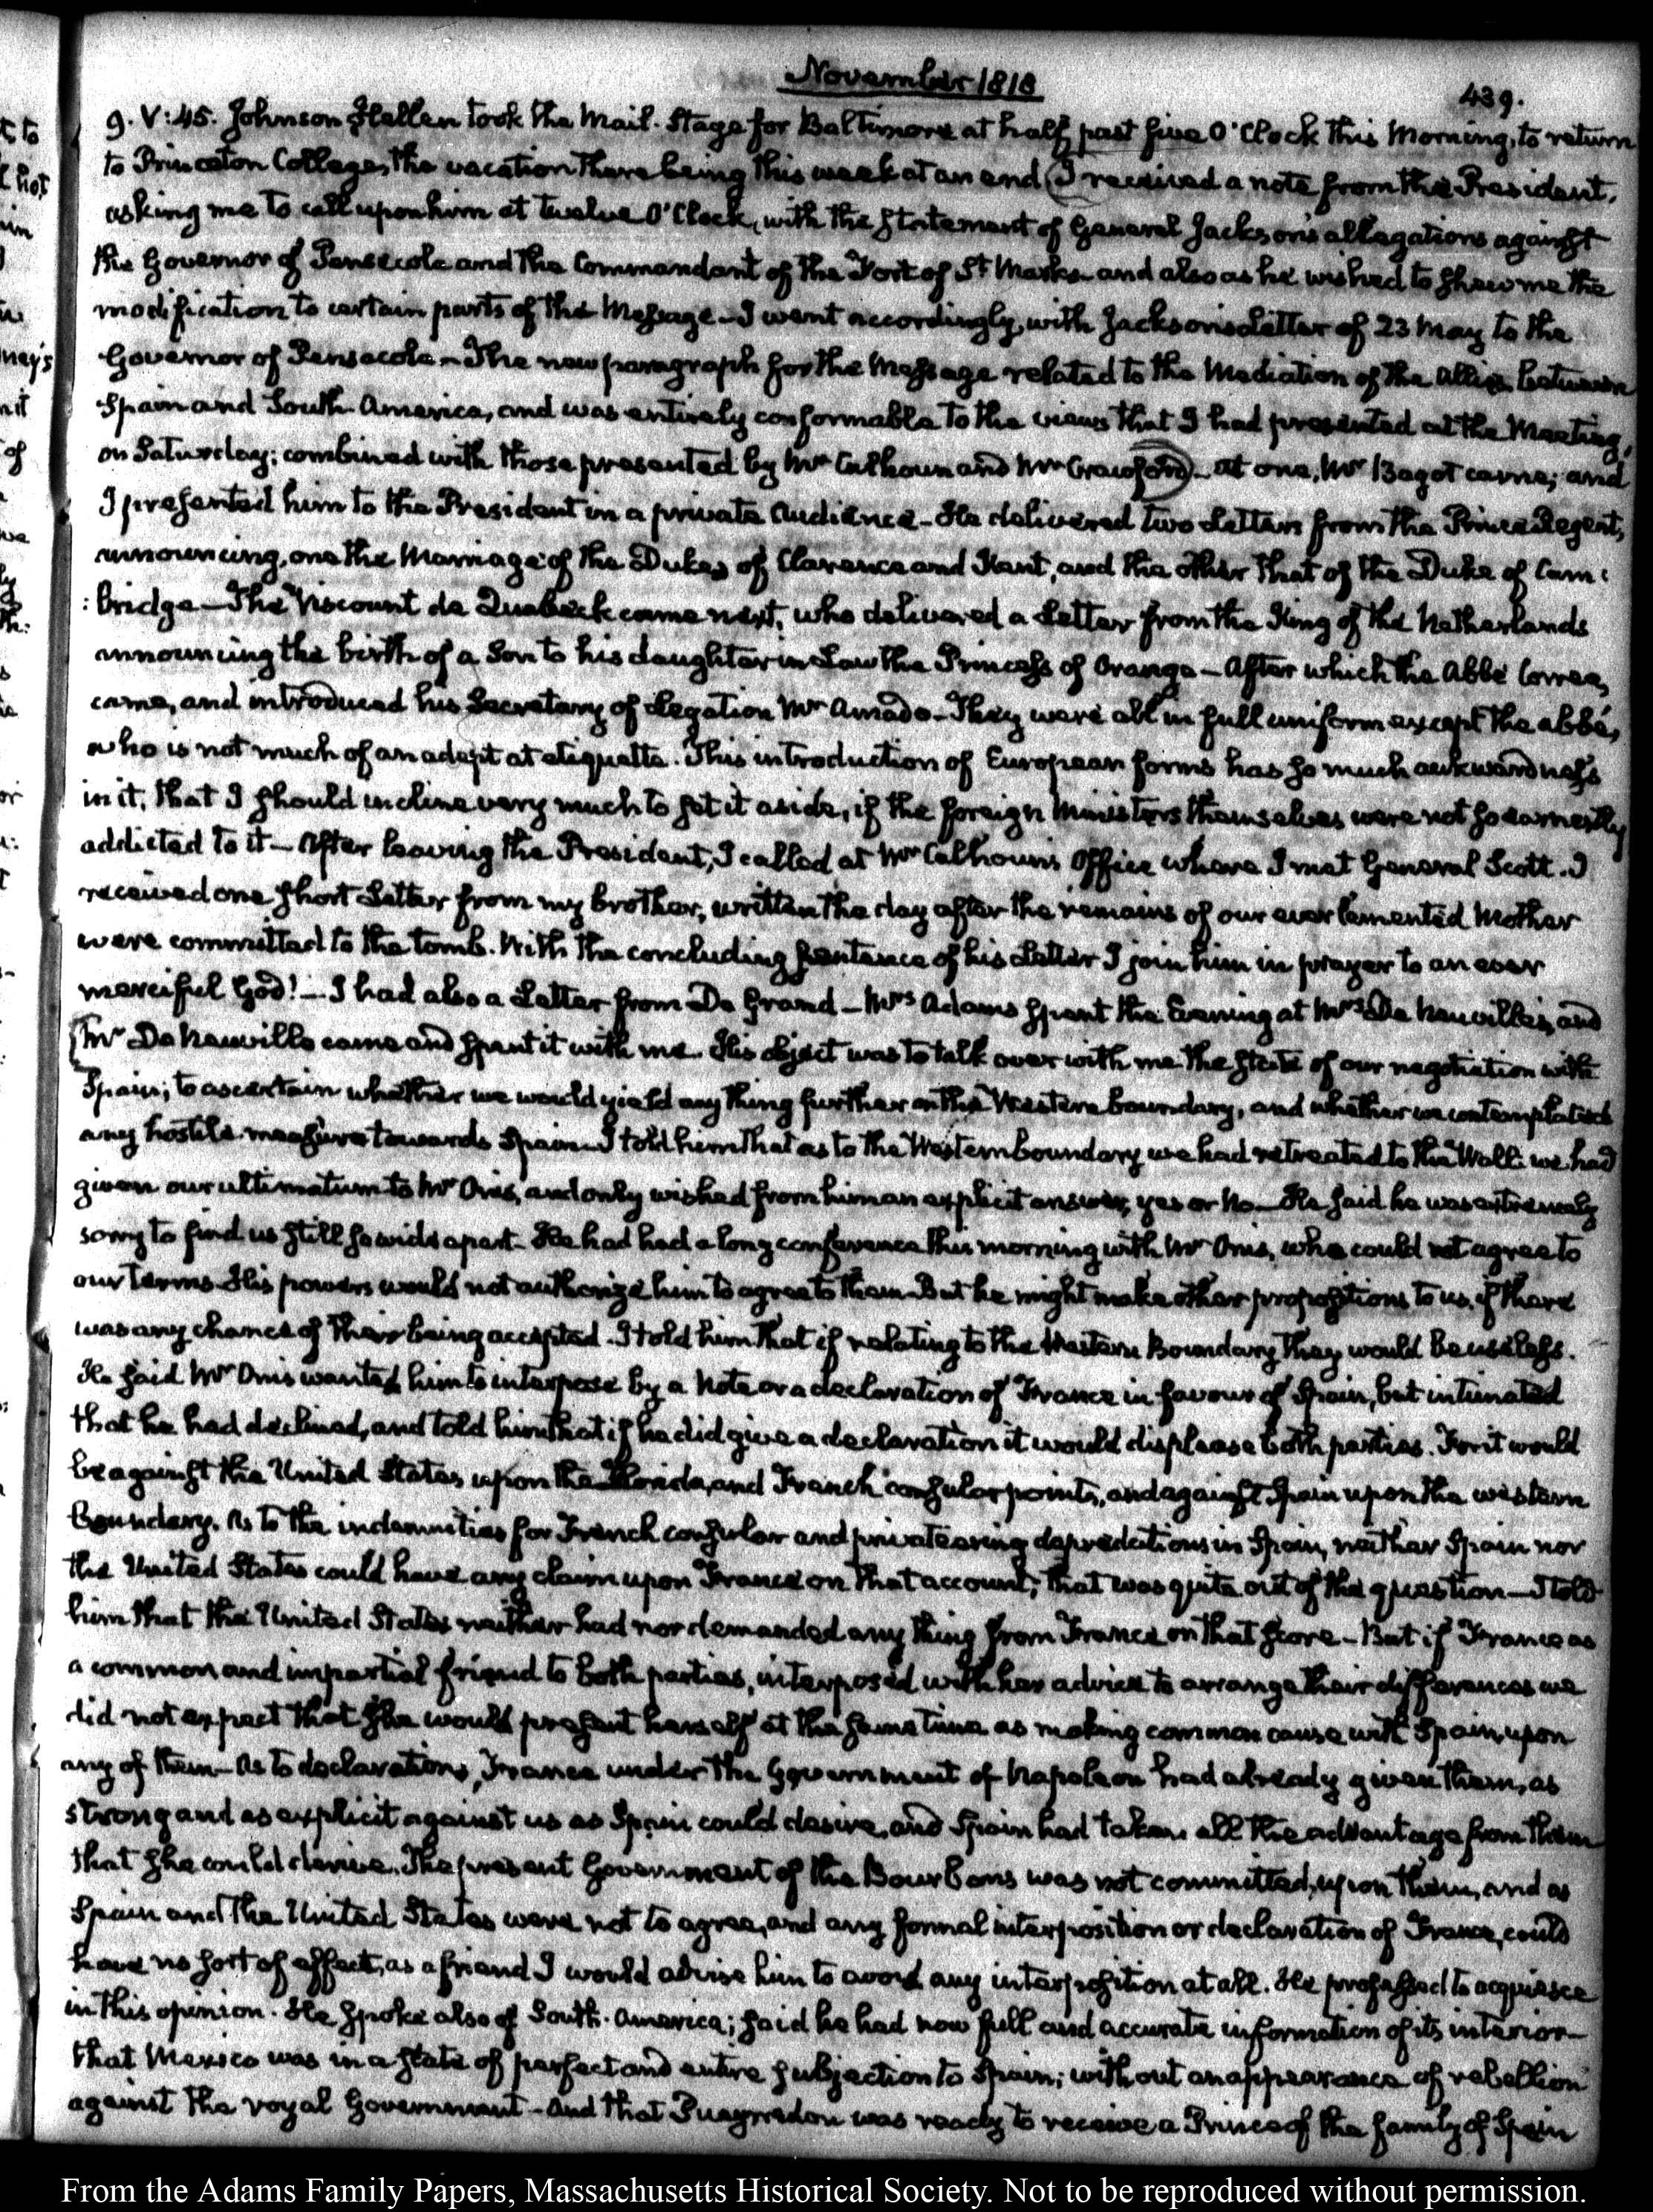 November 1818
439.
9. V:45. Johnson Hellen took the Mail-Stage for Baltimore at half past five O'Clock this Morning, to return
to Princeton College, the vacation there being this week at an end (I received a note from the President,
asking me to call upon him at twelve O'Clock, with the statement of General Jackson's allegations against
the Governor of Pensacola and the Commandant of the Fort of St. Marks and also as he wished to shew me the
modification to certain parts of the Message - I went accordingly, with Jackson's Letter of 23 May to the
Governor of Pensacola - The new paragraph for the Message related to the Mediation of the Allies between
Spain and South-America, and was entirely conformable to the views that I had presented at the Meeting,
on Saturday; combined with those presented by Mr Calhoun and Mr Crawford) - at one, Mr Bagot came; and
I presented him to the President in a private Audience - He delivered two Letters from the Prince Regent,
announcing, one the Marriage of the Dukes of Clarence and Kent, and the other that of the Duke of Cam:
:bridge - The Viscount de Quabeck came next, who delivered a Letter from the King of the Netherlands
announcing the birth of a Son to his daughter in Law the Princess of Orange - After which the Abbé Correa,
came, and introduced his Secretary of Legation Mr Amado - They were all in full uniform except the abbé,
who is not much of an adept at etiquette. This introduction of European forms has so much awkwardness
in it, that I should incline very much to set it aside, if the foreign Ministers themselves were not so earnestly
addicted to it - After leaving the President, I called at Mr Calhoun's Office where I met General Scott. I
received one short Letter from my brother, written the day after the remains of our ever lamented Mother
were committed to the tomb. With the concluding sentence of his Letter I join him in prayer to an ever
merciful God! - I had also a Letter from De Grand - Mrs Adams spent the Evening at Mrs De Neuville's, and
[Mr De Neuville came and spent it with me. His object was to talk over with me the state of our negotiation with
Spain; to ascertain whether we would yield any thing further on the Western boundary, and whether we contemplated
any hostile measure towards Spain - I told him that as to the Western boundary we had retreated to the Wall: we had
given our ultimatum to Mr Onis, and only wished from him an explicit answer, yes or no - He said he was extremely
sorry to find us still so wide apart - He had had a long conference this morning with Mr Onis, who could not agree to
our terms - His powers would not authorize him to agree to them - But he might make other propositions to us, if there
was any chance of their being accepted - I told him that if relating to the Western Boundary they would be useless.
He said Mr Onis wanted him to interpose by a Note or a declaration of France in favour of Spain, but intimated
that he had declined, and told him that if he did give a declaration it would displease both parties. For it would
be against the United States, upon the Florida, and French consular points, and against Spain upon the western
Boundary. As to the indemnities for French consular and privateering depredations in Spain, neither Spain nor
the United States could have any claim upon France on that account; that was quite out of the question - I told
him that the United States neither had nor demanded any thing from France on that score - But if France as
a common and impartial friend to both parties, interposed with her advice to arrange their differences we
did not expect that she would present herself at the same time as making common cause with Spain, upon
any of them - As to declarations, France under the Government of Napoleon had already given them, as
strong and as explicit against us as Spain could desire, and Spain had taken all the advantage from them
that she could derive. The present Government of the Bourbons was not committed, upon them, and as
Spain and the United States were not to agree, and any formal interposition or declaration of France, could
have no sort of effect, as a friend I would advise him to avoid any interposition at all. He professed to acquiesce
in this opinion. He spoke also of South-America; said he had now full and accurate information of its interior -
that Mexico was in a state of perfect and entire subjection to Spain; without an appearance of rebellion
against the royal Government - And that Pueyrredon was ready to receive a Prince of the family of Spain
From the Adams Family Papers, Massachusetts Historical Society. Not to be reproduced without permission.